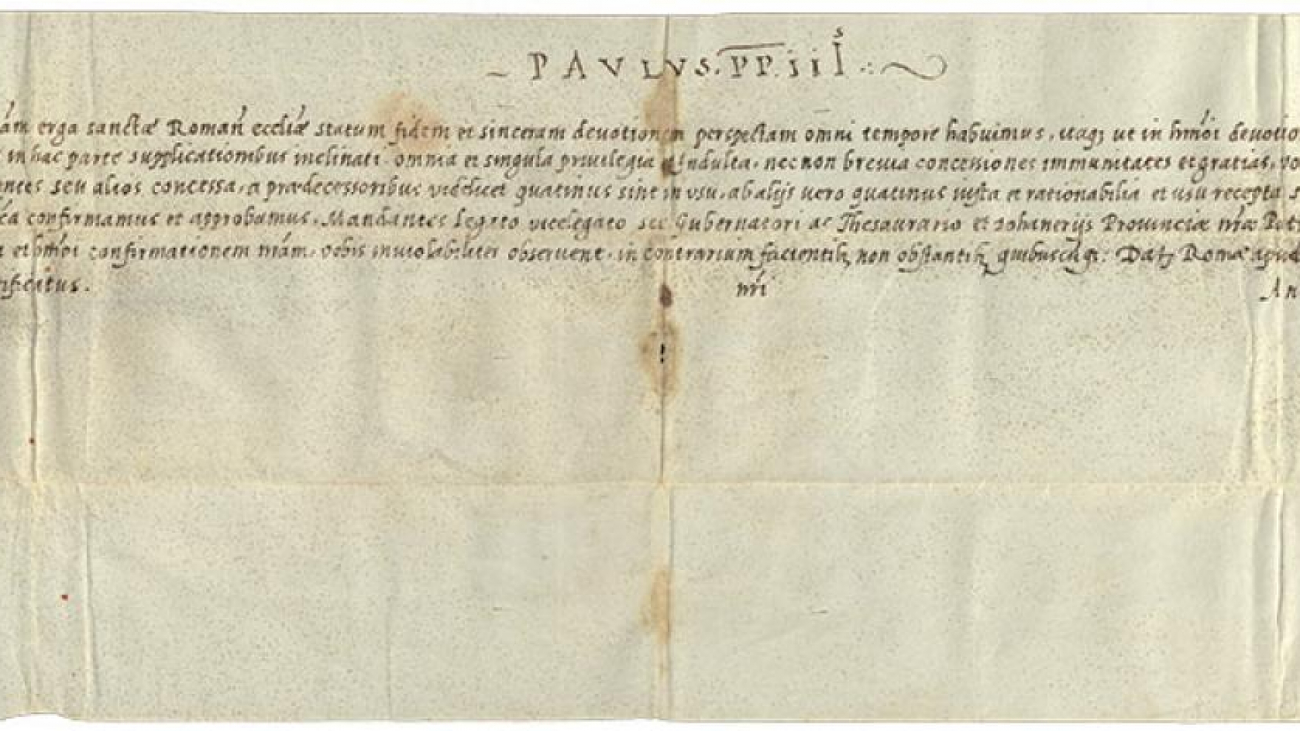 PAVLVS. PP. iii ͥs
ãm erga sanctæ Romañ eccliæ statum fidem et sinceram deuotionem perspectam omni tempore habuimus, itaq; ut in hmõi deuotio
in hac parte supplicationibus inclinati. omnia et singula priuilegia indulta, nec non breuia concessiones immunitates et gratias, vo
seu alios concessa, a prædecessoribus videlicet quatinus sint in usu, ab alijs uero quatinus iusta et rationabilia et usu recepta s
confirmamus et approbamus. Mandantes legato vicelegato seu Gubernatori ac Thesaurario et Provinciæ nr̃æ
et hmõi confirmationem nr̃am. vobis inuiolabiliter obseruent. in contrarium facientib; non obstantib; quibuscuq;. Dat; Romæ apud
nr̃i An